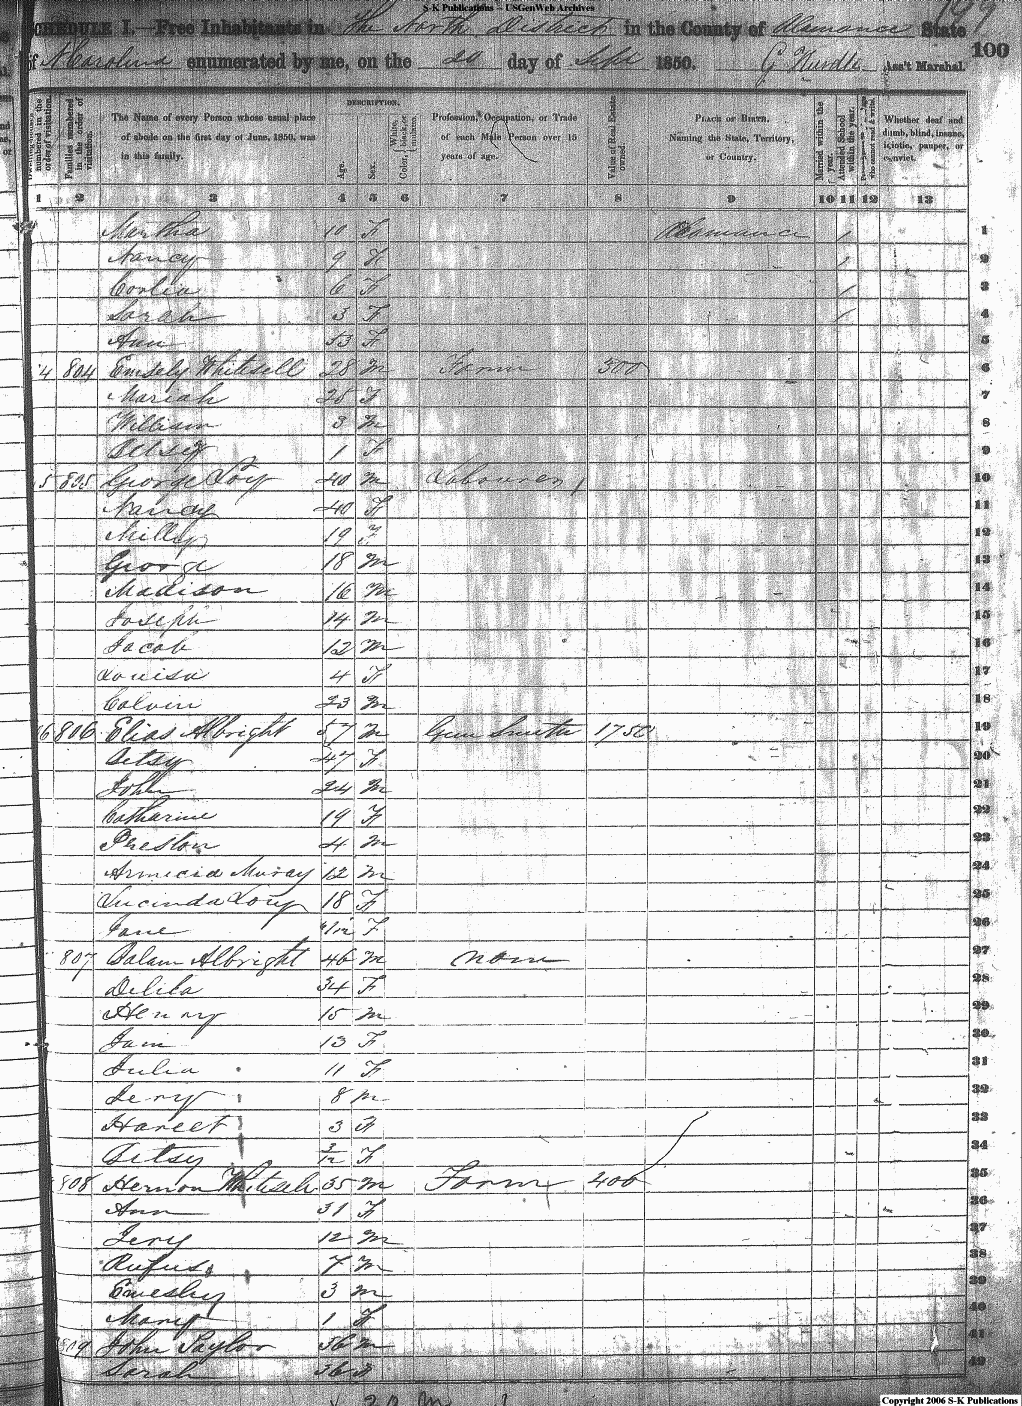 S-K Publications - USGenWeb Archives
199
SCHEDULE I.—Free Inhabitants in The North District in the County of Alamance State
of N Carolina enumerated by me, on the 20 day of Sept 1850. G Hurdle Ass't Marshal.
100
DESCRIPTION.
numbered in the order of visitation.
Families numbered in the order of visitation.
The Name of every Person whose usual place of abode on the first day of June, 1850, was in this family.
Age.
Sex.
White, black, or mulatto.
Color,
Profession, Occupation, or Trade of each Male Person over 15 years of age.
Value of Real Estate owned.
PLACE OF BIRTH. Naming the State, Territory, or Country.
Married within the year.
Attended School within the year.
Whether deaf and dumb, blind, insane, idiotic, pauper, or convict.
1 2 3 4 5 6 7 8 9 10 11 12 13
Martha 10 F Alamance 1 1
Nancy 9 F 1 2
F 1 3
Sarah 3 F 1 4
Ann 53 F 5
4 804 Emsely Whitsell 28 M Farm 300 6
Mariah 28 F 7
William 3 M 8
Betsey 1 F 9
5 805 George Loy 40 M Labourer 10
Nancy 40 F 11
Milly 19 F 12
George 18 M 13
Madison 16 M 14
Joseph 14 M 15
Jacob 12 M 16
Louisa 4 F 17
Calvin 23 M 18
6 806 Elias Albright 57 M Gun Smith 1750 19
Betsy 47 F 20
John 24 M 21
Catharine 19 F 22
Preston 4 M 23
Armecia Muray 12 M 24
Lucinda Loy 18 F 25
Jane F 26
807 Balam Albright 46 M none 27
Delila 34 F 28
Henry 15 M 29
Jane 13 F 30
Julia 11 F 31
Jery 8 M 32
Hareet 3 F 33
Betsy 3/12 F 34
808 Hernon Whitsell 35 M Farm 400 35
Ann 31 F 36
Jery 12 M 37
Rufus 7 M 38
Emesley 3 M 39
Mary 1 F 40
809 John Saylor 56 M 41
Sarah 36 F 42
Copyright 2006 S-K Publications